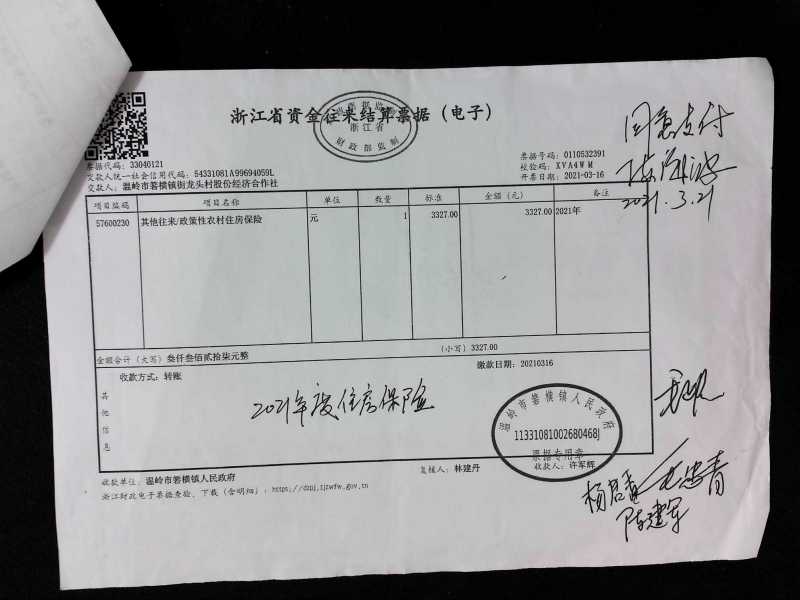 浙江省资金往来结算票据（电子）
财政票据监制
浙江省
财政部监制
票据代码：33040121
交款人统一社会信用代码：54331081A99694059L
交款人：温岭市箬横镇街龙头村股份经济合作社
票据号码：0110532391
校验码：XVA4WM
开票日期：2021-03-16
同意支付
2021.3.21
项目编码 项目名称 单位 数量 标准 金额（元） 备注
57600230 其他往来/政策性农村住房保险 元 1 3327.00 3327.00 2021年
金额合计（大写）叁仟叁佰贰拾柒元整 （小写）3327.00
收款方式：转账 缴款日期：20210316
其他信息
2021年度住房保险
温岭市箬横镇人民政府
11331081002680468J
票据专用章
收款单位：温岭市箬横镇人民政府 复核人：林建丹 收款人：许军辉
浙江财政电子票据查验、下载（含明细）：https://dzpj.zjzwfw.gov.cn
陈建军